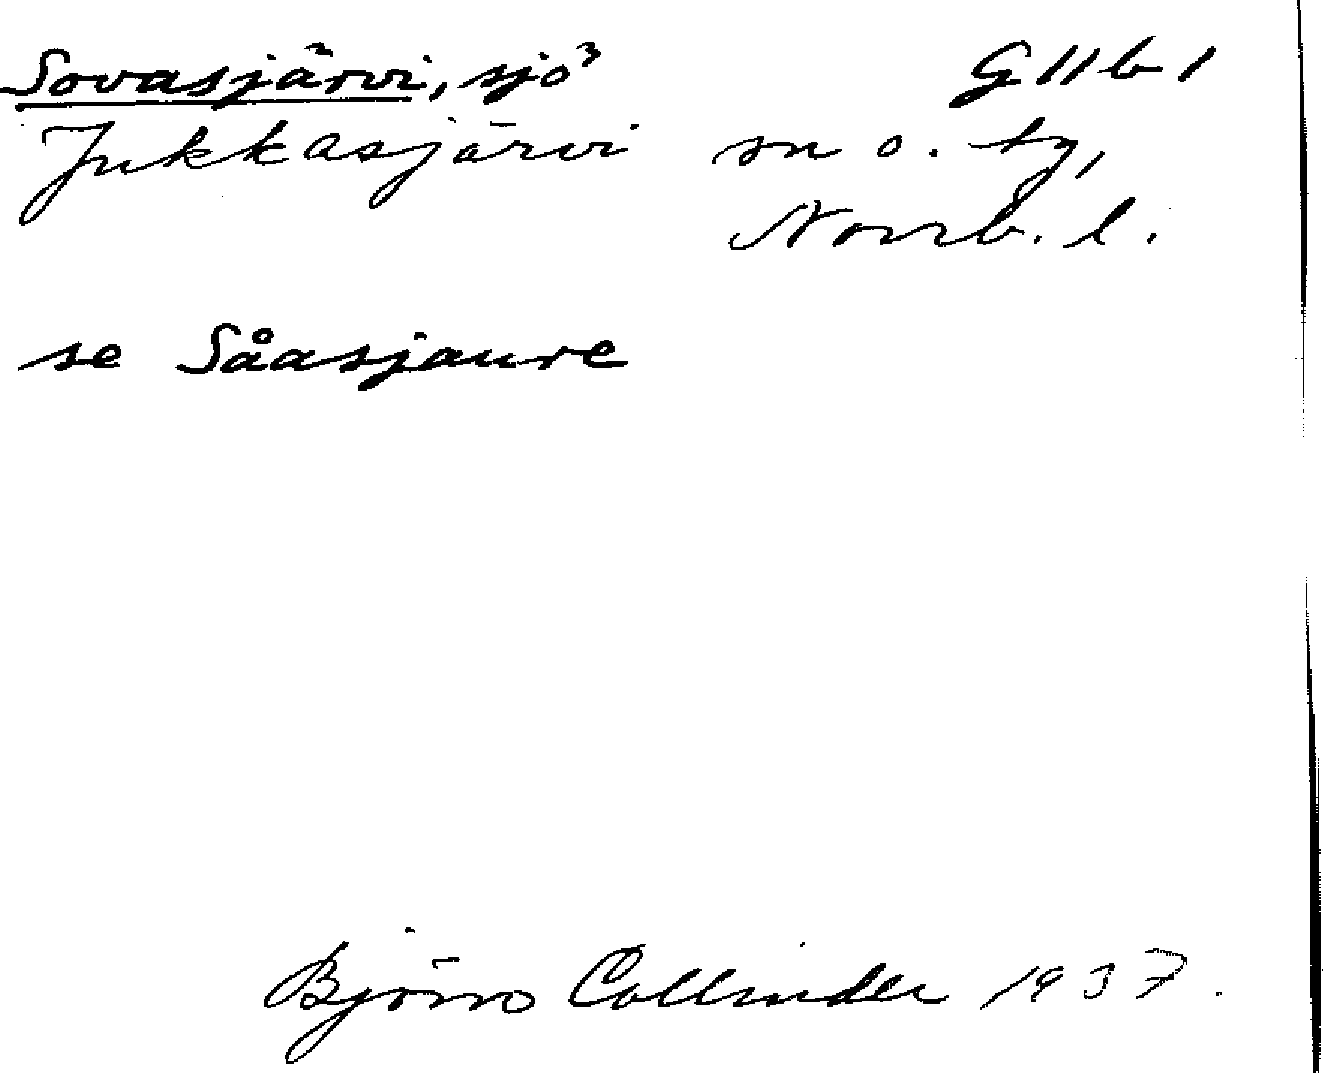 Sovasjärvi, sjö G 11 b 1
Jukkasjärvi sn o. tg,
Norrb. l.
se Såasjaure
Björn Collinder 1937.